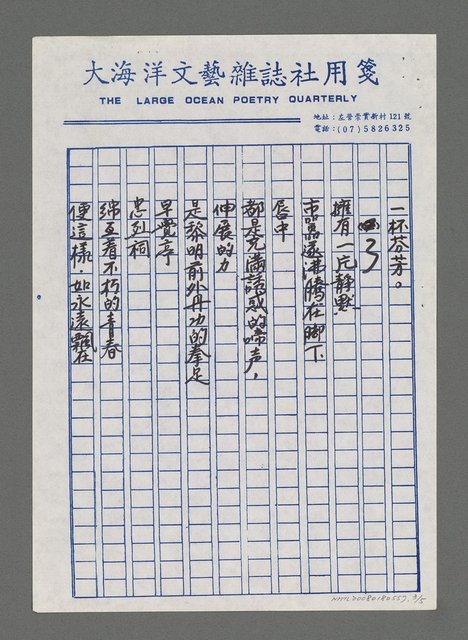 大海洋文藝雜誌社用箋
THE LARGE OCEAN POETRY QUARTERLY
地址：左營崇實新村121號
電話：(07)5826325
一杯谷芳。
3
擁有一片靜默
市囂遂沸騰在脚下
唇中
都是充滿誘惑的啼声，
伸展的力
是黎明前外丹功的拳足
早覺亭
忠烈祠
綿亙着不朽的青春
便這樣．如永遠飄在
NMTL20080180557, 3/5